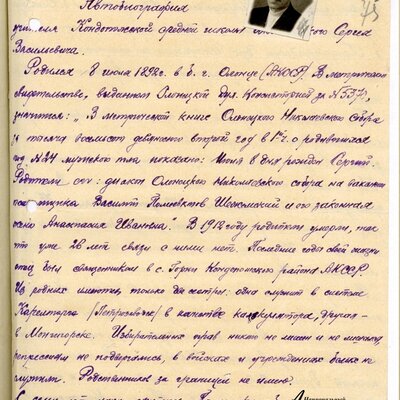 75
Автобиография
учителя Кондопожской средней школы Сергея
Васильевича.
Родился 8 июля 1892 г. в б. г. Олонце (АКССР). В метрическом
свидетельстве, выданном Олонецкой дух. Консисторией за № 5371,
значится: „В метрической книге Олонецкого Николаевского Собора
за тысяча восемьсот девяносто второй год в 1ч. о родившихся
под № 24 мужеска пола показано: Июля 8 дня рожден Сергий.
Родители его: диакон Олонецкого Николаевского собора на вакансии
псаломщика Василий и его законная
жена Анастасия Иванова." В 1912 году родители умерли, так
что уже 26 лет связи с ними нет. Последние годы своей жизни
отец был священником в с. Горки Кондопожского района АКССР.
Из родных имеются только две сестры: одна служит в системе
Карелторга (Петрозаводск) в качестве калькулятора, другая -
в Мончегорске. Избирательных прав никто не лишен и не
репрессиям не подвергались, в войсках и учреждениях белых не
служили. Родственников за границей не имею.